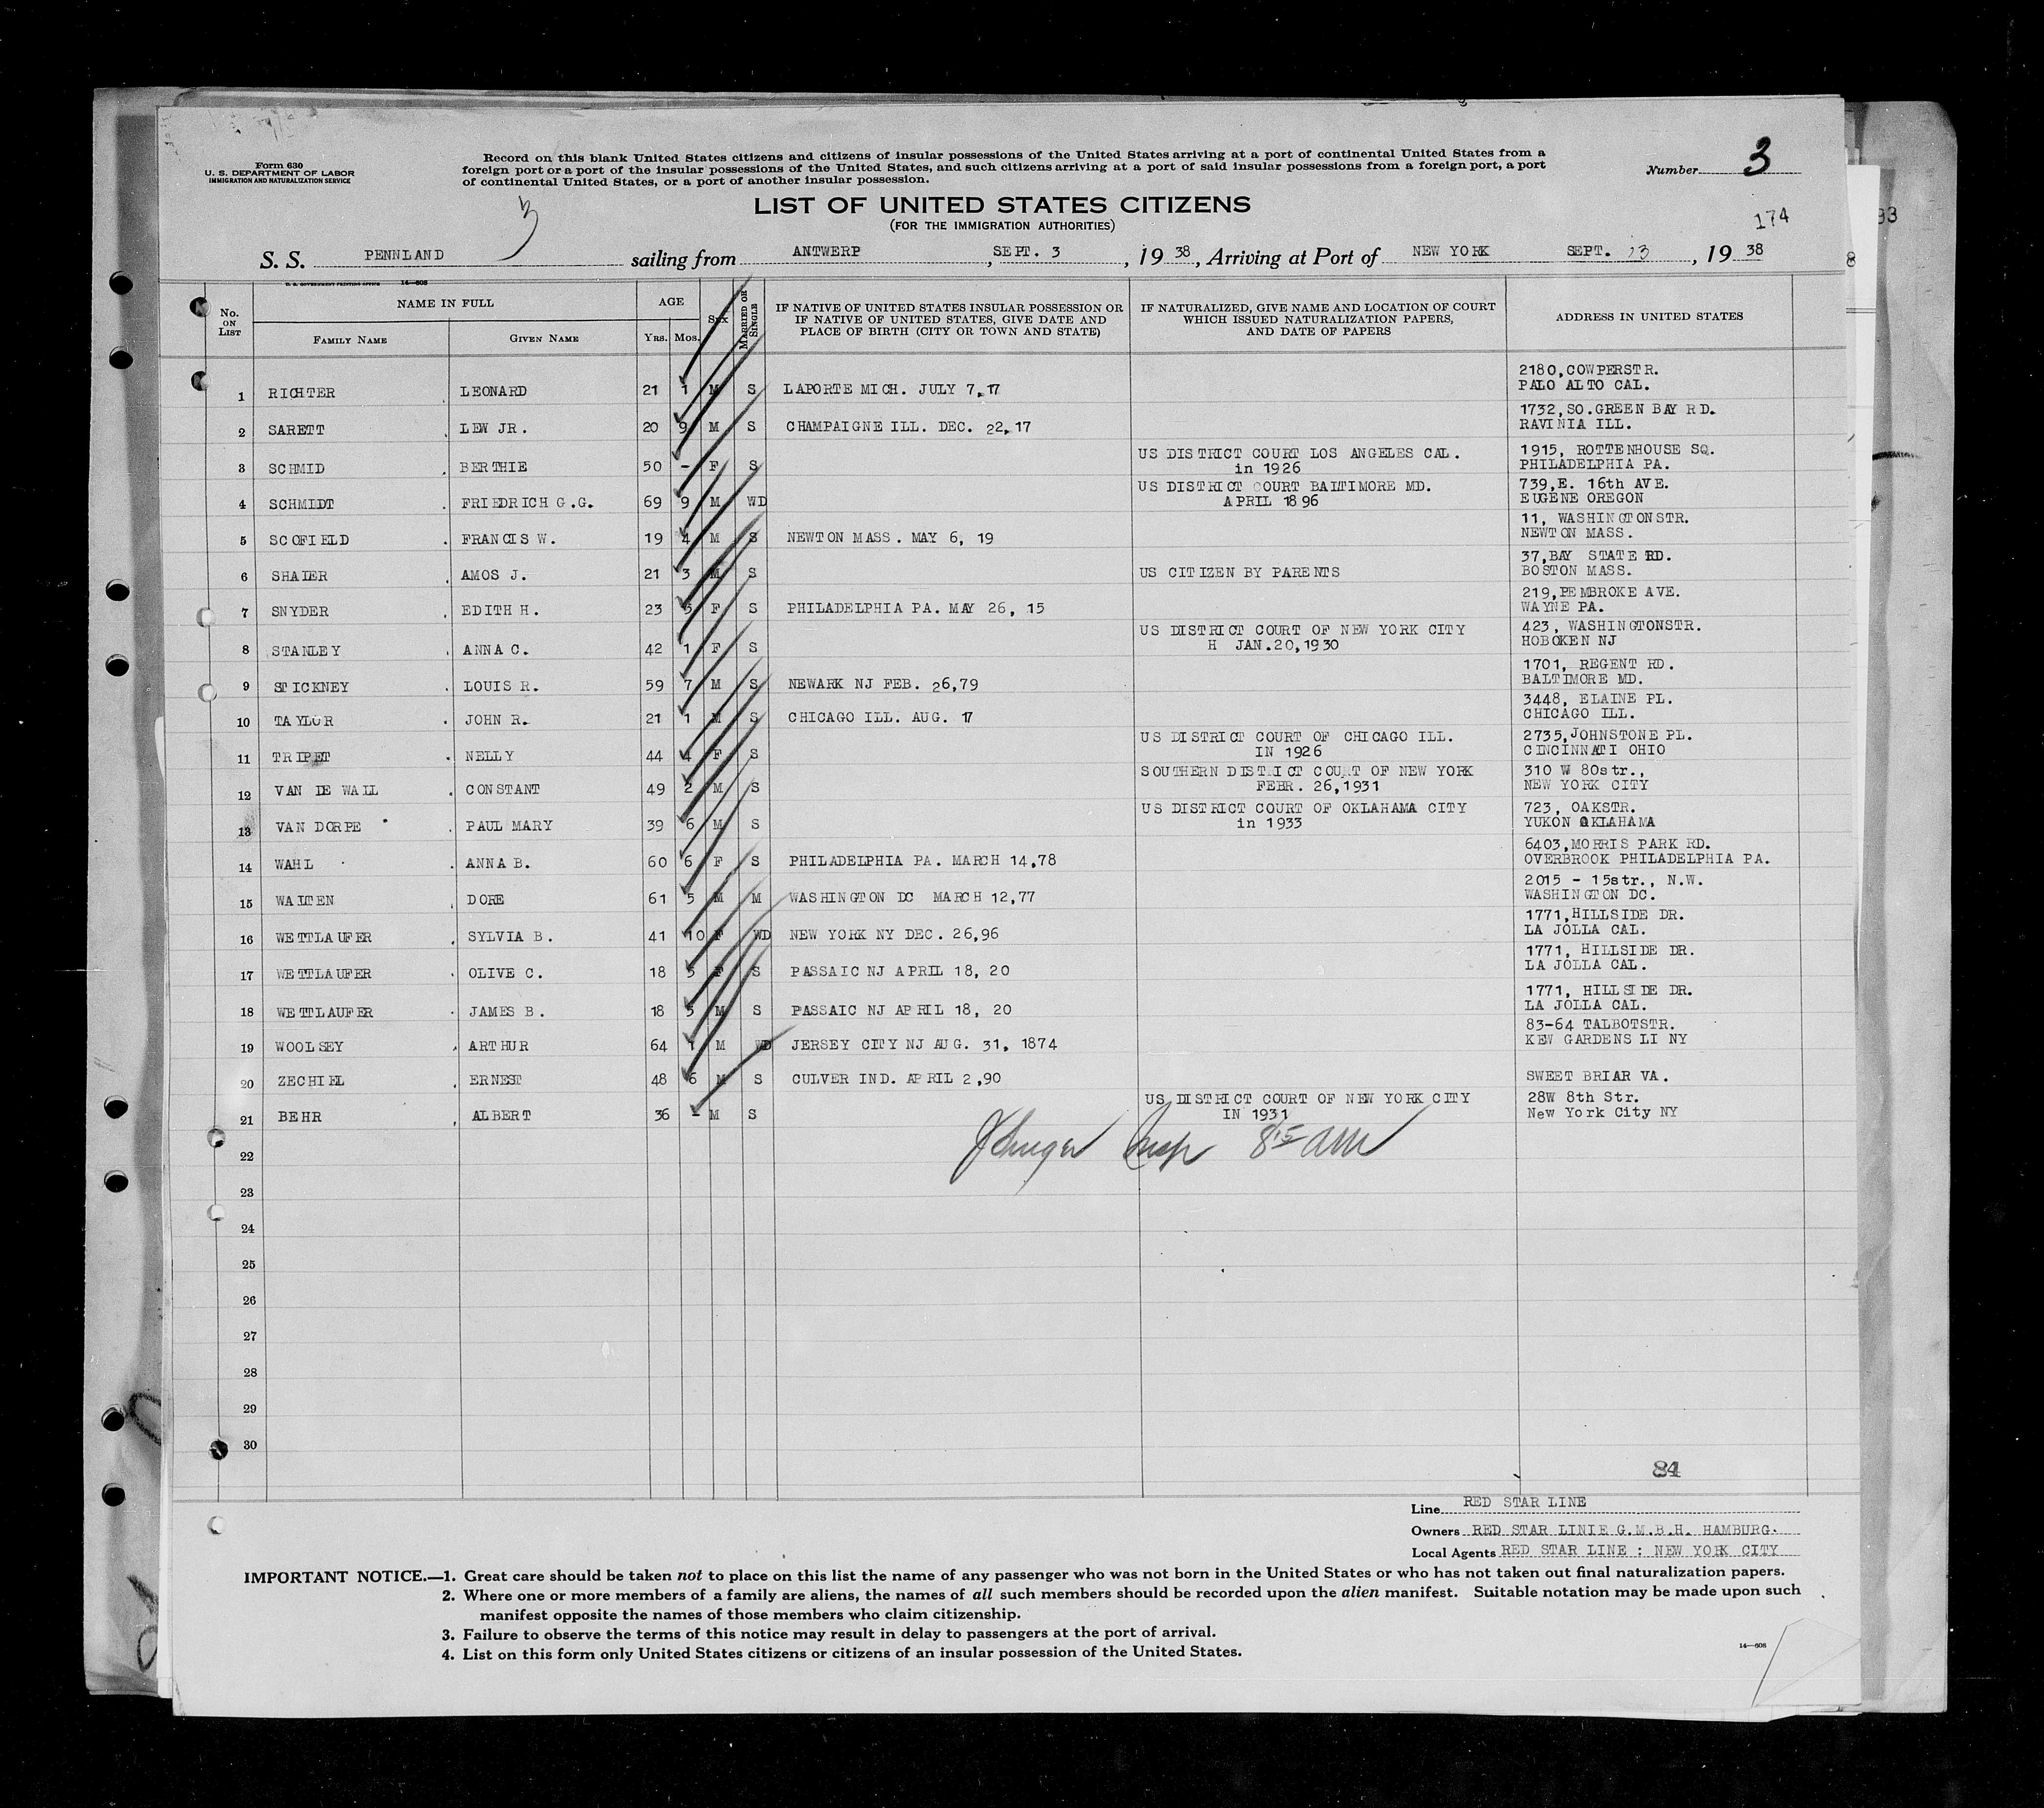 Form 630
U. S. DEPARTMENT OF LABOR
IMMIGRATION AND NATURALIZATION SERVICE
Record on this blank United States citizens and citizens of insular possessions of the United States arriving at a port of continental United States from a
foreign port or a port of the insular possessions of the United States, and such citizens arriving at a port of said insular possessions from a foreign port, a port
of continental United States, or a port of another insular possession.
Number 3
LIST OF UNITED STATES CITIZENS
(FOR THE IMMIGRATION AUTHORITIES)
3
174
93
8
S. S. PENNLAND sailing from ANTWERP, SEPT. 3, 19 38, Arriving at Port of NEW YORK SEPT. 13, 19 38
U. S. GOVERNMENT PRINTING OFFICE 14—608
No. ON LIST
NAME IN FULL
FAMILY NAME GIVEN NAME
AGE
YRS. MOS.
SEX
MARRIED OR SINGLE
IF NATIVE OF UNITED STATES INSULAR POSSESSION OR
IF NATIVE OF UNITED STATES, GIVE DATE AND
PLACE OF BIRTH (CITY OR TOWN AND STATE)
IF NATURALIZED, GIVE NAME AND LOCATION OF COURT
WHICH ISSUED NATURALIZATION PAPERS,
AND DATE OF PAPERS
ADDRESS IN UNITED STATES
2180,COWPERSTR.
1 RICHTER LEONARD 21 1 M S LAPORTE MICH. JULY 7,17 PALO ALTO CAL.
1732,SO.GREEN BAY RD.
2 SARETT LEW JR. 20 9 M S CHAMPAIGNE ILL. DEC. 22,17 RAVINIA ILL.
US DISTRICT COURT LOS ANGELES CAL. 1915, ROTTENHOUSE SQ.
3 SCHMID BERTHIE 50 - F S in 1926 PHILADELPHIA PA.
US DISTRICT COURT BALTIMORE MD. 739,E. 16th AVE.
4 SCHMIDT FRIEDRICH G.G. 69 9 M WD APRIL 1896 EUGENE OREGON
11, WASHINGTONSTR.
5 SCOFIELD FRANCIS W. 19 4 M S NEWTON MASS. MAY 6, 19 NEWTON MASS.
37,BAY STATE RD.
6 SHAIER AMOS J. 21 3 M S US CITIZEN BY PARENTS BOSTON MASS.
219,PEMBROKE AVE.
7 SNYDER EDITH H. 23 3 F S PHILADELPHIA PA. MAY 26, 15 WAYNE PA.
US DISTRICT COURT OF NEW YORK CITY 423, WASHINGTONSTR.
8 STANLEY ANNA C. 42 1 F S H JAN.20,1930 HOBOKEN NJ
1701, REGENT RD.
9 STICKNEY LOUIS R. 59 7 M S NEWARK NJ FEB. 26,79 BALTIMORE MD.
3448, ELAINE PL.
10 TAYLOR JOHN R. 21 1 M S CHICAGO ILL. AUG. 17 CHICAGO ILL.
US DISTRICT COURT OF CHICAGO ILL. 2735,JOHNSTONE PL.
11 TRIPET NELLY 44 4 F S IN 1926 CINCINNATI OHIO
SOUTHERN DISTRICT COURT OF NEW YORK 310 W 80str.,
12 VAN DE WALL CONSTANT 49 2 M S FEBR. 26,1931 NEW YORK CITY
US DISTRICT COURT OF OKLAHAMA CITY 723, OAKSTR.
13 VAN DORPE PAUL MARY 39 6 M S in 1933 YUKON OKLAHAMA
6403,MORRIS PARK RD.
14 WAHL ANNA B. 60 6 F S PHILADELPHIA PA. MARCH 14,78 OVERBROOK PHILADELPHIA PA.
2015 - 15str., N.W.
15 WALTEN DORE 61 5 M M WASHINGTON DC MARCH 12,77 WASHINGTON DC.
1771,HILLSIDE DR.
16 WETTLAUFER SYLVIA B. 41 10 F WD NEW YORK NY DEC. 26,96 LA JOLLA CAL.
1771, HILLSIDE DR.
17 WETTLAUFER OLIVE C. 18 5 F S PASSAIC NJ APRIL 18, 20 LA JOLLA CAL.
1771, HILLSIDE DR.
18 WETTLAUFER JAMES B. 18 5 M S PASSAIC NJ APRIL 18, 20 LA JOLLA CAL.
83-64 TALBOTSTR.
19 WOOLSEY ARTHUR 64 1 M WD JERSEY CITY NJ AUG. 31, 1874 KEW GARDENS LI NY
20 ZECHIEL ERNEST 48 6 M S CULVER IND. APRIL 2,90 SWEET BRIAR VA.
US DISTRICT COURT OF NEW YORK CITY 28W 8th Str.
21 BEHR ALBERT 36 - M S IN 1931 New York City NY
Insp 8 15 AM
22
23
24
25
26
27
28
29
30
84
Line RED STAR LINE
Owners RED STAR LINIE G.M.B.H. HAMBURG.
Local Agents RED STAR LINE : NEW YORK CITY
IMPORTANT NOTICE.—1. Great care should be taken not to place on this list the name of any passenger who was not born in the United States or who has not taken out final naturalization papers.
2. Where one or more members of a family are aliens, the names of all such members should be recorded upon the alien manifest. Suitable notation may be made upon such
manifest opposite the names of those members who claim citizenship.
3. Failure to observe the terms of this notice may result in delay to passengers at the port of arrival.
4. List on this form only United States citizens or citizens of an insular possession of the United States.
14—608